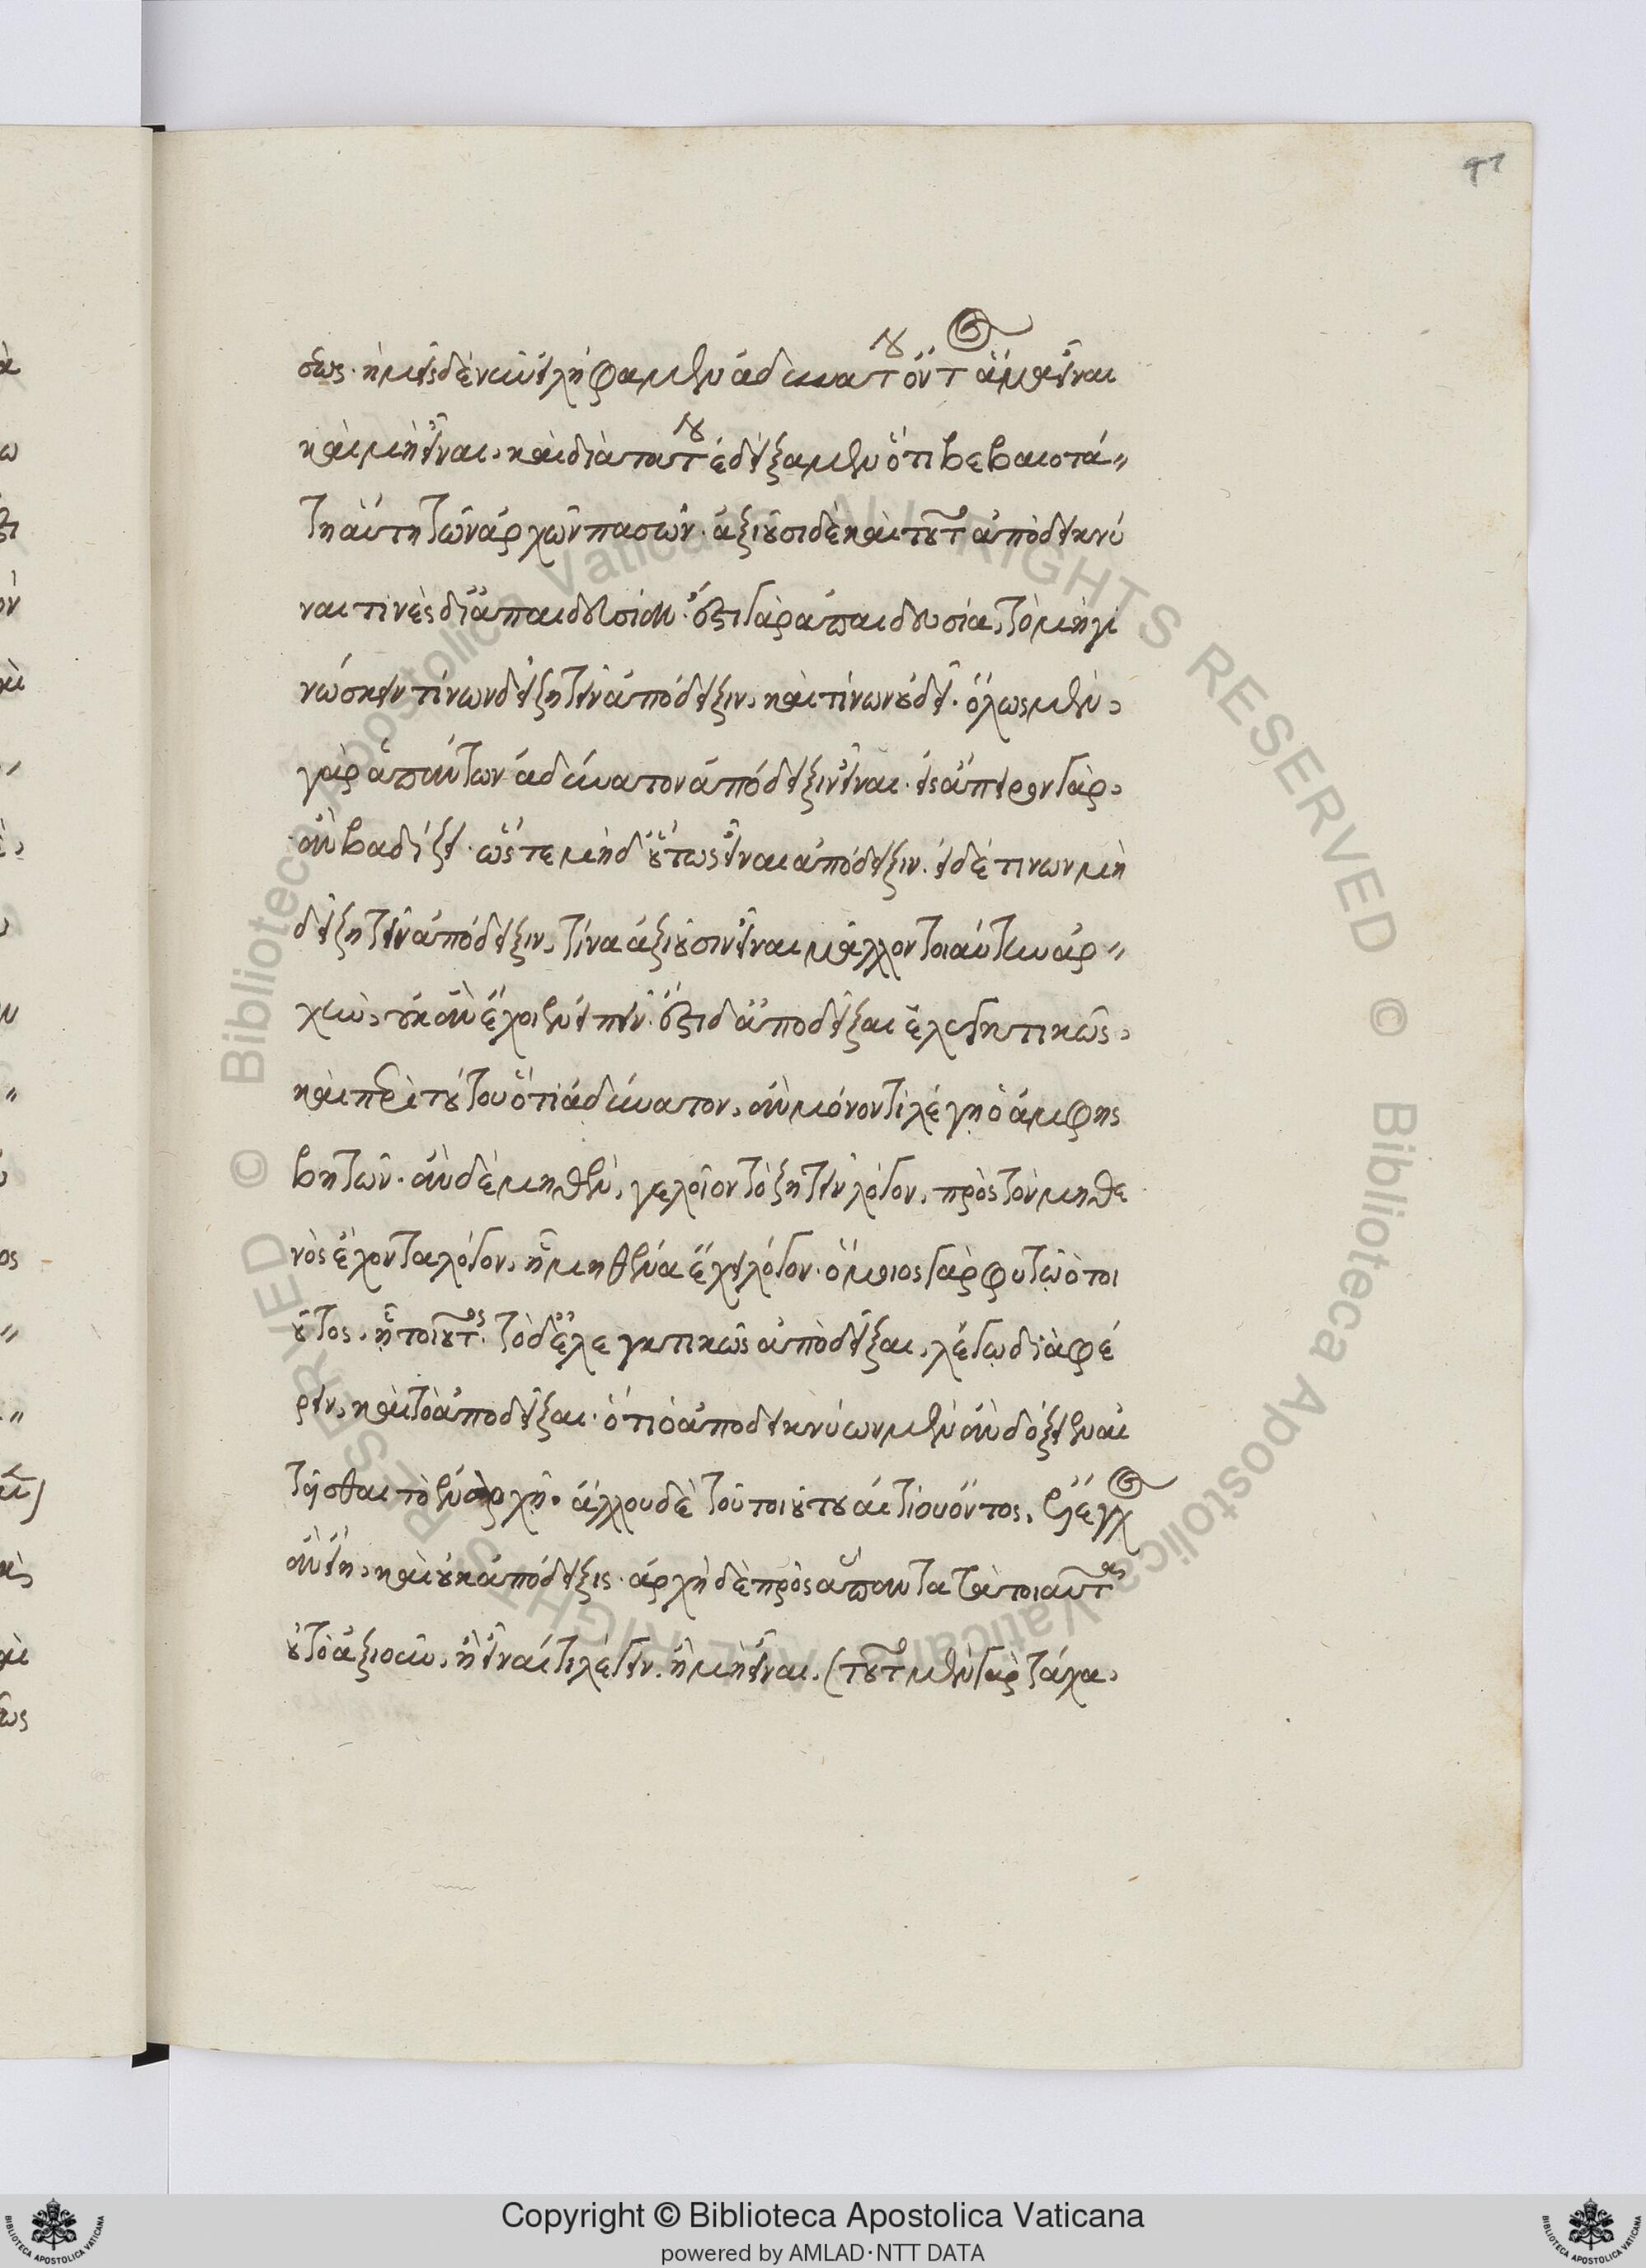 91
σεως· ἡμεῖς δὲ νῦν εἰλήφαμεν ἀδυνάτου ὄντος ἅμα εἶναι
καὶ μὴ εἶναι, καὶ διὰ τούτου ἐδείξαμεν ὅτι βεβαιοτά〃
τη αὕτη τῶν ἀρχῶν πασῶν· ἀξιοῦσι δὲ καὶ τοῦτο ἀποδεικνύ
ναι τινὲς δι' ἀπαιδευσίαν· ἔστι γὰρ ἀπαιδευσία, τὸ μὴ γι
νώσκειν τίνων δεῖ ζητεῖν ἀπόδειξιν, καὶ τίνων οὐ δεῖ· ὅλως μὲν,
γὰρ ἁπάντων ἀδύνατον ἀπόδειξιν εἶναι· εἰς ἄπειρον γὰρ,
ἂν βαδίζει· ὥστε μηδ' οὕτως εἶναι ἀπόδειξιν· εἰ δέ τινων μὴ
δεῖ ζητεῖν ἀπόδειξιν, τίνα ἀξιοῦσιν εἶναι μᾶλλον τοιαύτην ἀρ〃
χὴν, οὐκ ἂν ἔχοιεν εἰπεῖν· ἔστι δ' ἀποδεῖξαι ἐλεγκτικῶς,
καὶ περὶ τούτου ὅτι ἀδύνατον, ἂν μόνον τι λέγῃ ὁ ἀμφισ
βητῶν· ἂν δὲ μηθὲν, γελοῖον τὸ ζητεῖν λόγον, πρὸς τὸν μηθε
νὸς ἔχοντα λόγον, ᾗ μηθένα ἔχει λόγον· ὅμοιος γὰρ φυτῷ ὁ τοι
οῦτος, ᾗ τοιοῦτος. τὸ δ' ἐλεγκτικῶς ἀποδεῖξαι, λέγω διαφέ
ρειν, καὶ τὸ ἀποδεῖξαι· ὅτι ὁ ἀποδεικνύων μὲν ἂν δόξειεν αἰ
τεῖσθαι τὸ ἐν ἀρχῇ· ἄλλου δὲ τοῦ τοιούτου αἰτίου ὄντος, ἔλεγχος
ἂν εἴη, καὶ οὐκ ἀπόδειξις· ἀρχὴ δὲ πρὸς ἅπαντα τὰ τοιαῦτα
οὐ τὸ ἀξιοῦν, ἢ εἶναί τι λέγειν, ἢ μὴ εἶναι, (τοῦτο μὲν γὰρ τάχα,
© Biblioteca Apostolica Vaticana ALL RIGHTS RESERVED
Copyright © Biblioteca Apostolica Vaticana
powered by AMLAD·NTT DATA